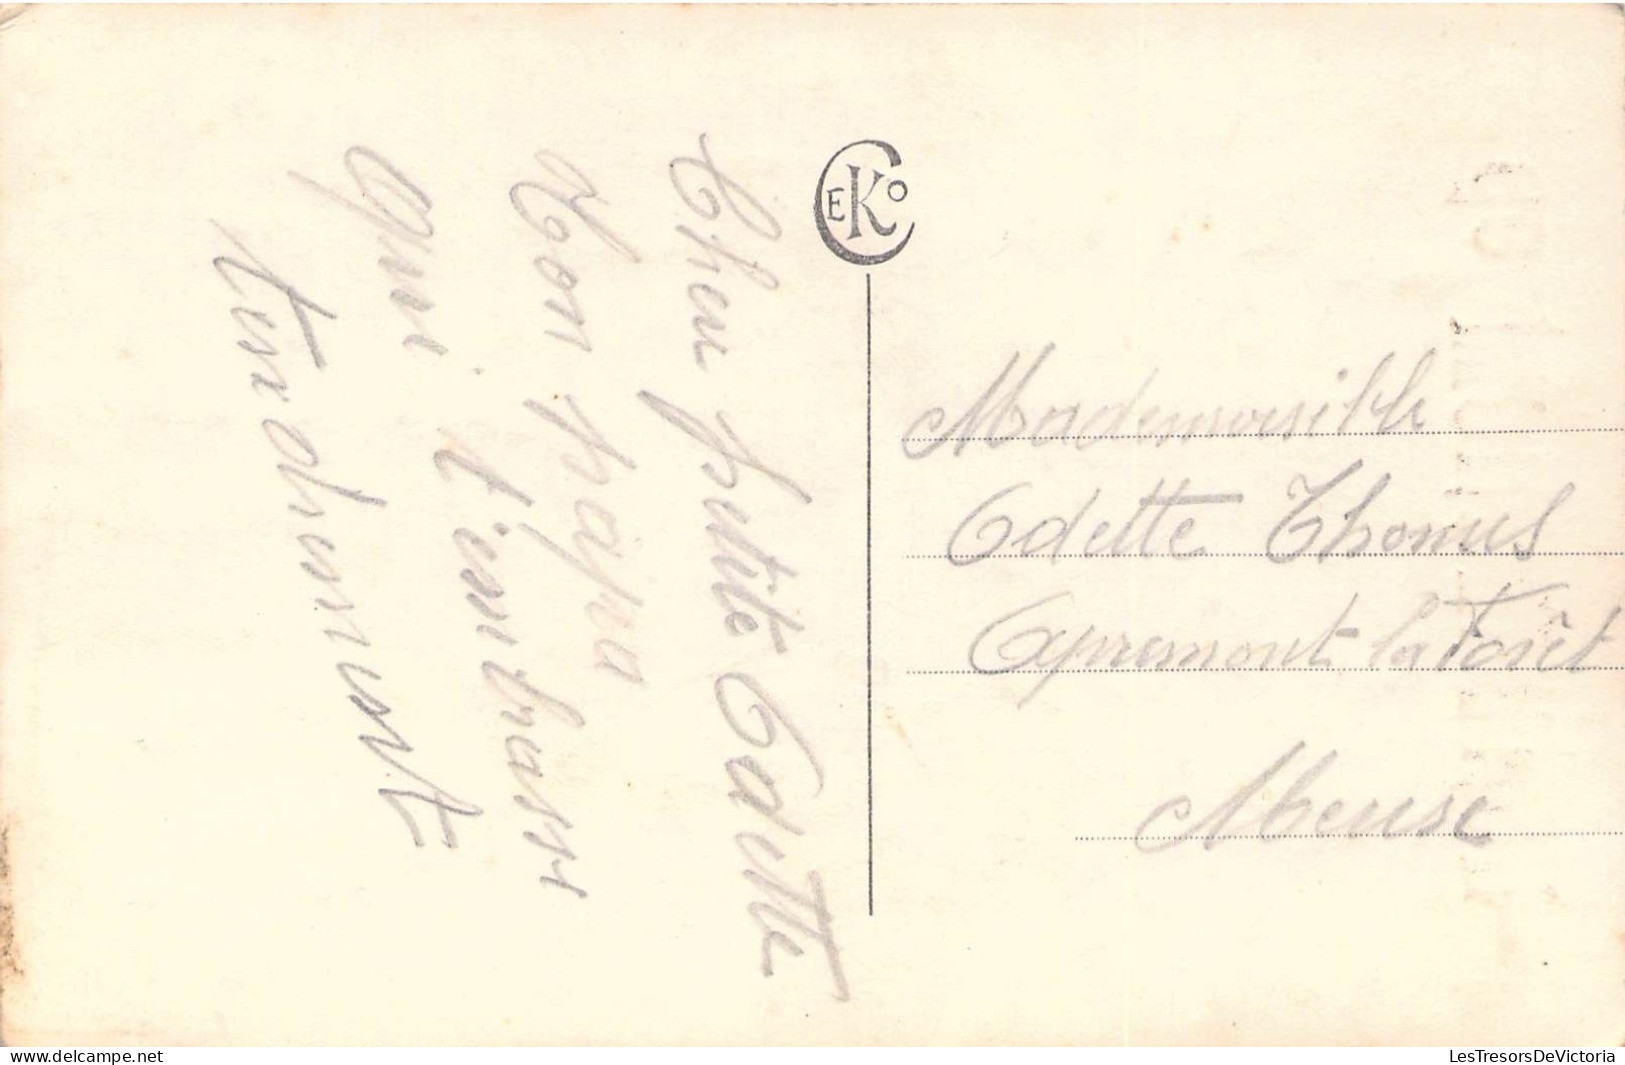 Cher petite Odette
Ton papa
qui t'embrasse
tendrement
CEKO
Mademoiselle
Odette Thomus
Apremont la Forêt
Meuse
delcampe.net
LesTresorsDeVictoria